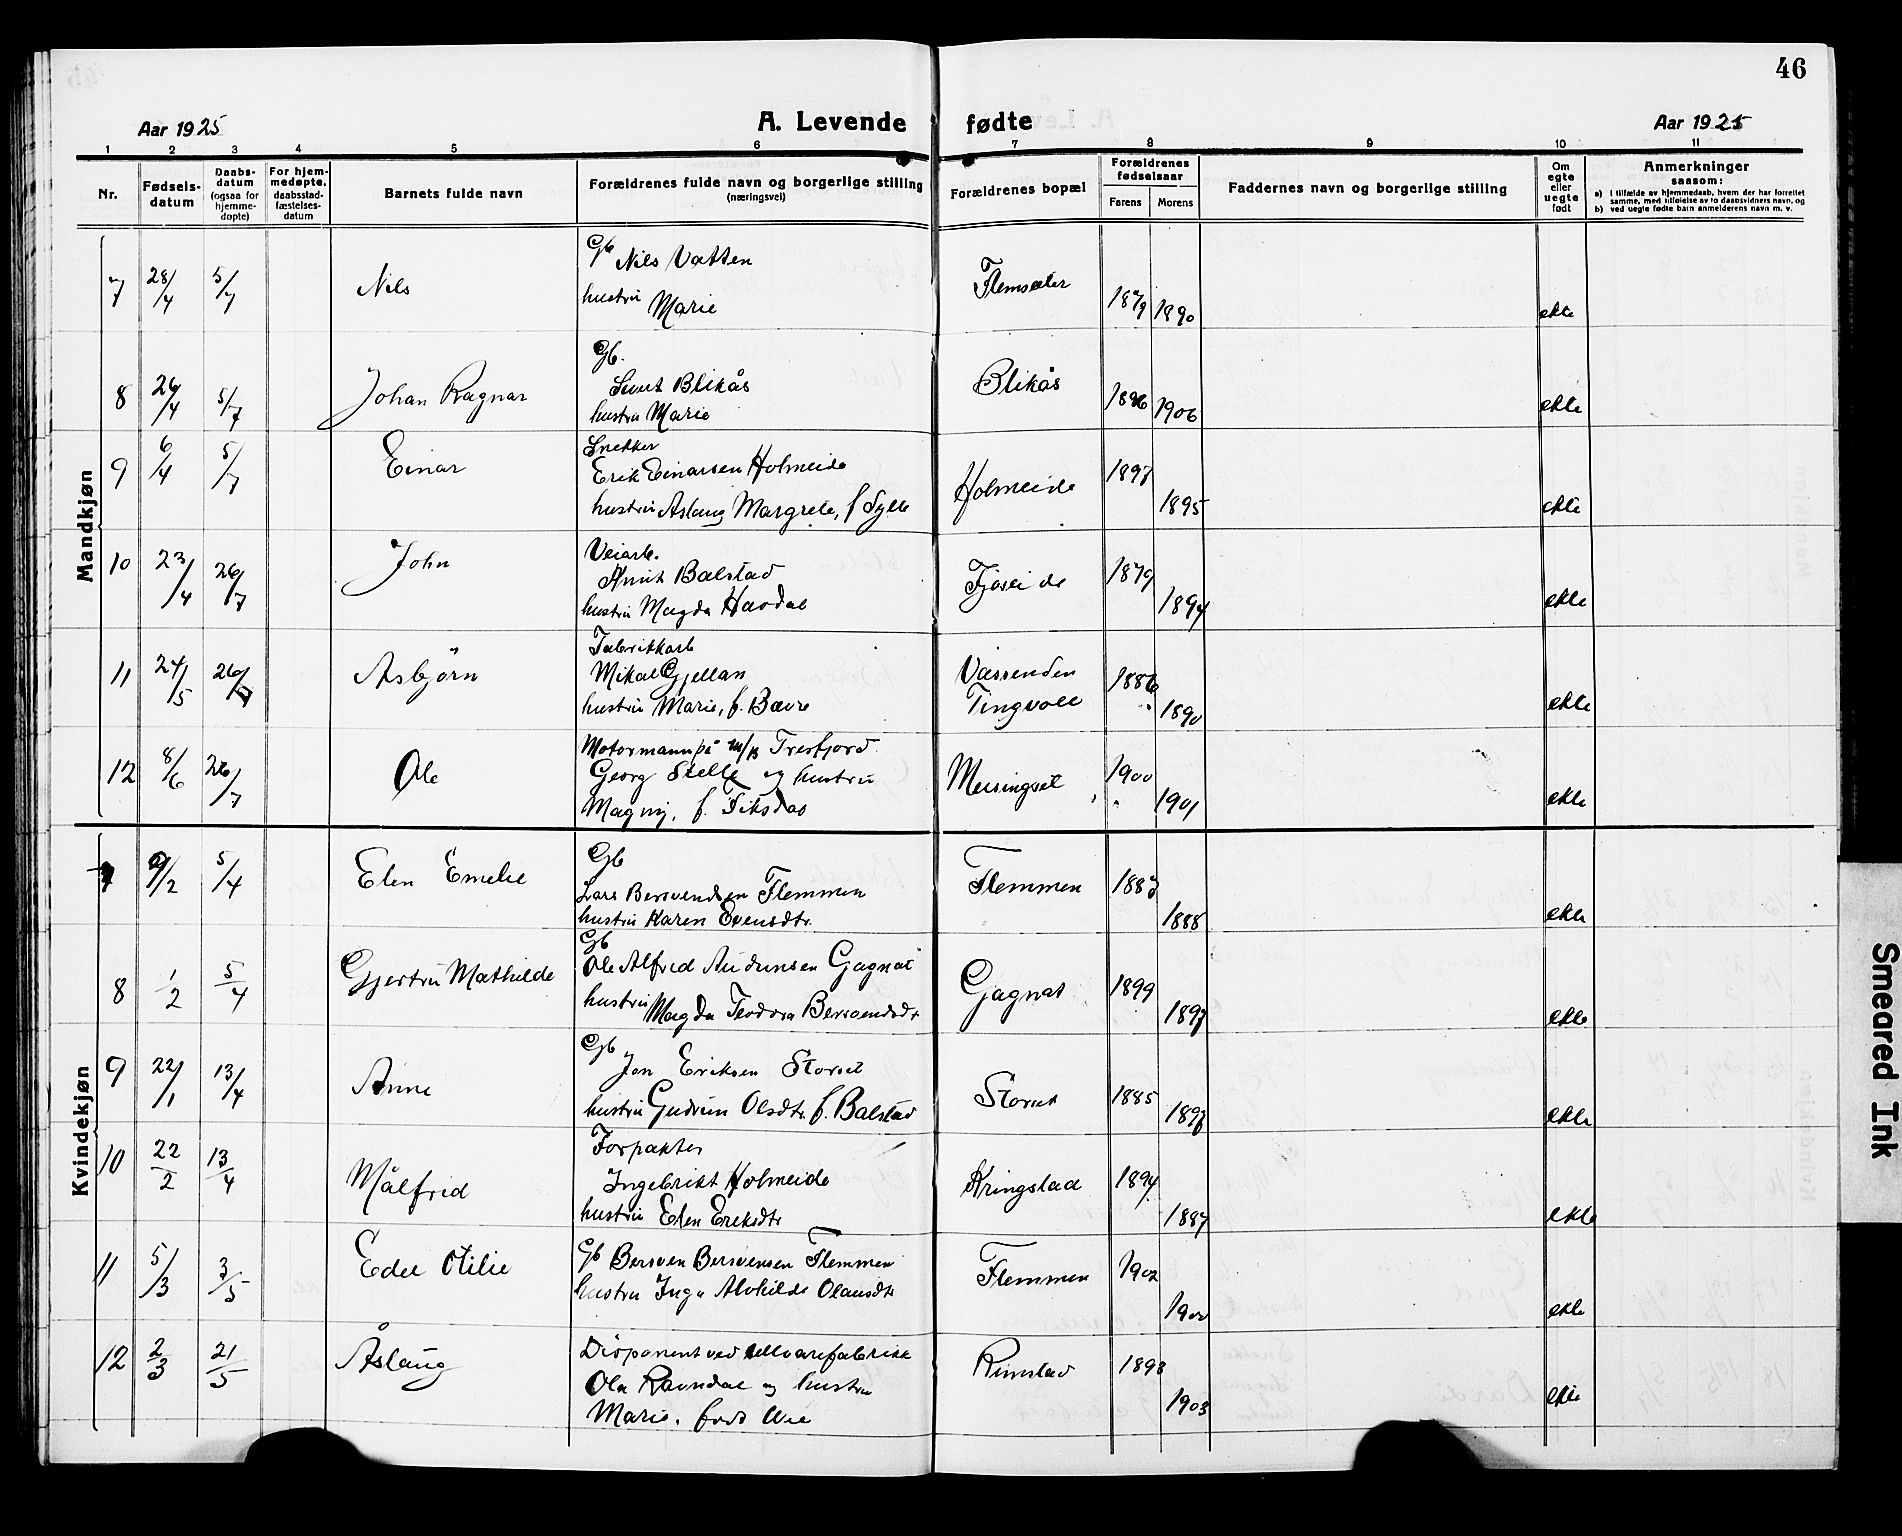 46
Aar 1925 A. Levende fødte Aar 1925
1 2 3 4 5 6 7 8 9 10 11
Nr.
Fødsels-
datum
Daabs-
datum
(ogsaa for
hjemme-
døpte)
For hjem-
medøpte,
daabsstad-
fæstelses-
datum
Barnets fulde navn
Forældrenes fulde navn og borgerlige stilling
(næringsvei)
Forældrenes bopæl
Forældrenes
fødselsaar
Farens Morens
Faddernes navn og borgerlige stilling
Om
egte
eller
uegte
født
Anmerkninger
saasom:
a) i tilfælde av hjemmedaab, hvem der har forrettet
samme, med tilføielse av to daabsvidners navn, og
b) ved uegte fødte barn anmelderens navn m. v.
Mandkjøn
7 28/4 5/7 Nils
Gb Nils Vatten
hustru
Marie
Flemsæter 1879 1890 ekte
8 26/4 5/7 Johan Ragnar
Gb.
Sivert Blikås
hustru Marie
Blikås 1896 1906 ekte
9 6/4 5/7 Einar
Snekker
Erik Einarsen Holmeide
hustru Aslaug Margrete, f Sylte
Holmeide 1897 1895 ekte
10 23/4 26/7 John
Veiarb.
Knut Balstad
hustru Magda Havdal
Fjøseide 1879 1894 ekte
11 24/5 26/7 Asbjörn
Fabrikkarb
Mikal Gjellan
hustru Marie, f. Bævre
Vassenden
Tingvoll
1886 1890 ekte
12 8/6 26/7 Ole
Motormann på m/k Tresfjord
Georg Stelle og hustru
Magny, f. Fiksdal
Meisingset 1900 1901 ekte
Kvindekjøn
7 9/2 5/4 Elen Emelie
Gb
Lars Bersvendsen Flemmen
hustru Karen Evensdtr.
Flemmen 1883 1888 ekte
8 1/2 5/4 Gjertru Mathilde
Gb
Ole Alfred Audunsen Gagnat
hustru Magda Teodora Bersvendsdtr
Gagnat 1899 1897 ekte
9 22/1 13/4 Anne
Gb Jon Eriksen Storset
hustru Gudrun Olsdtr f. Balstad
Storset 1885 ekte
10 22/2 13/4 Målfrid
Forpakter
Ingebrikt Holmeide
hustru Elen Eriksdtr
Kringstad 1894 1887 ekte
11 5/3 3/5 Edel Otilie
Gb Bersven Bersvensen Flemmen
hustru Inga Alvhilde Olausdtr
Flemmen 1902 1900 ekte
12 2/3 21/5 Åslaug
Disponent ved ullvarefabrikk
Ola Ravndal og hustru
Marie, født Lie
Rimstad 1898 1903 ekte
Smeared Ink